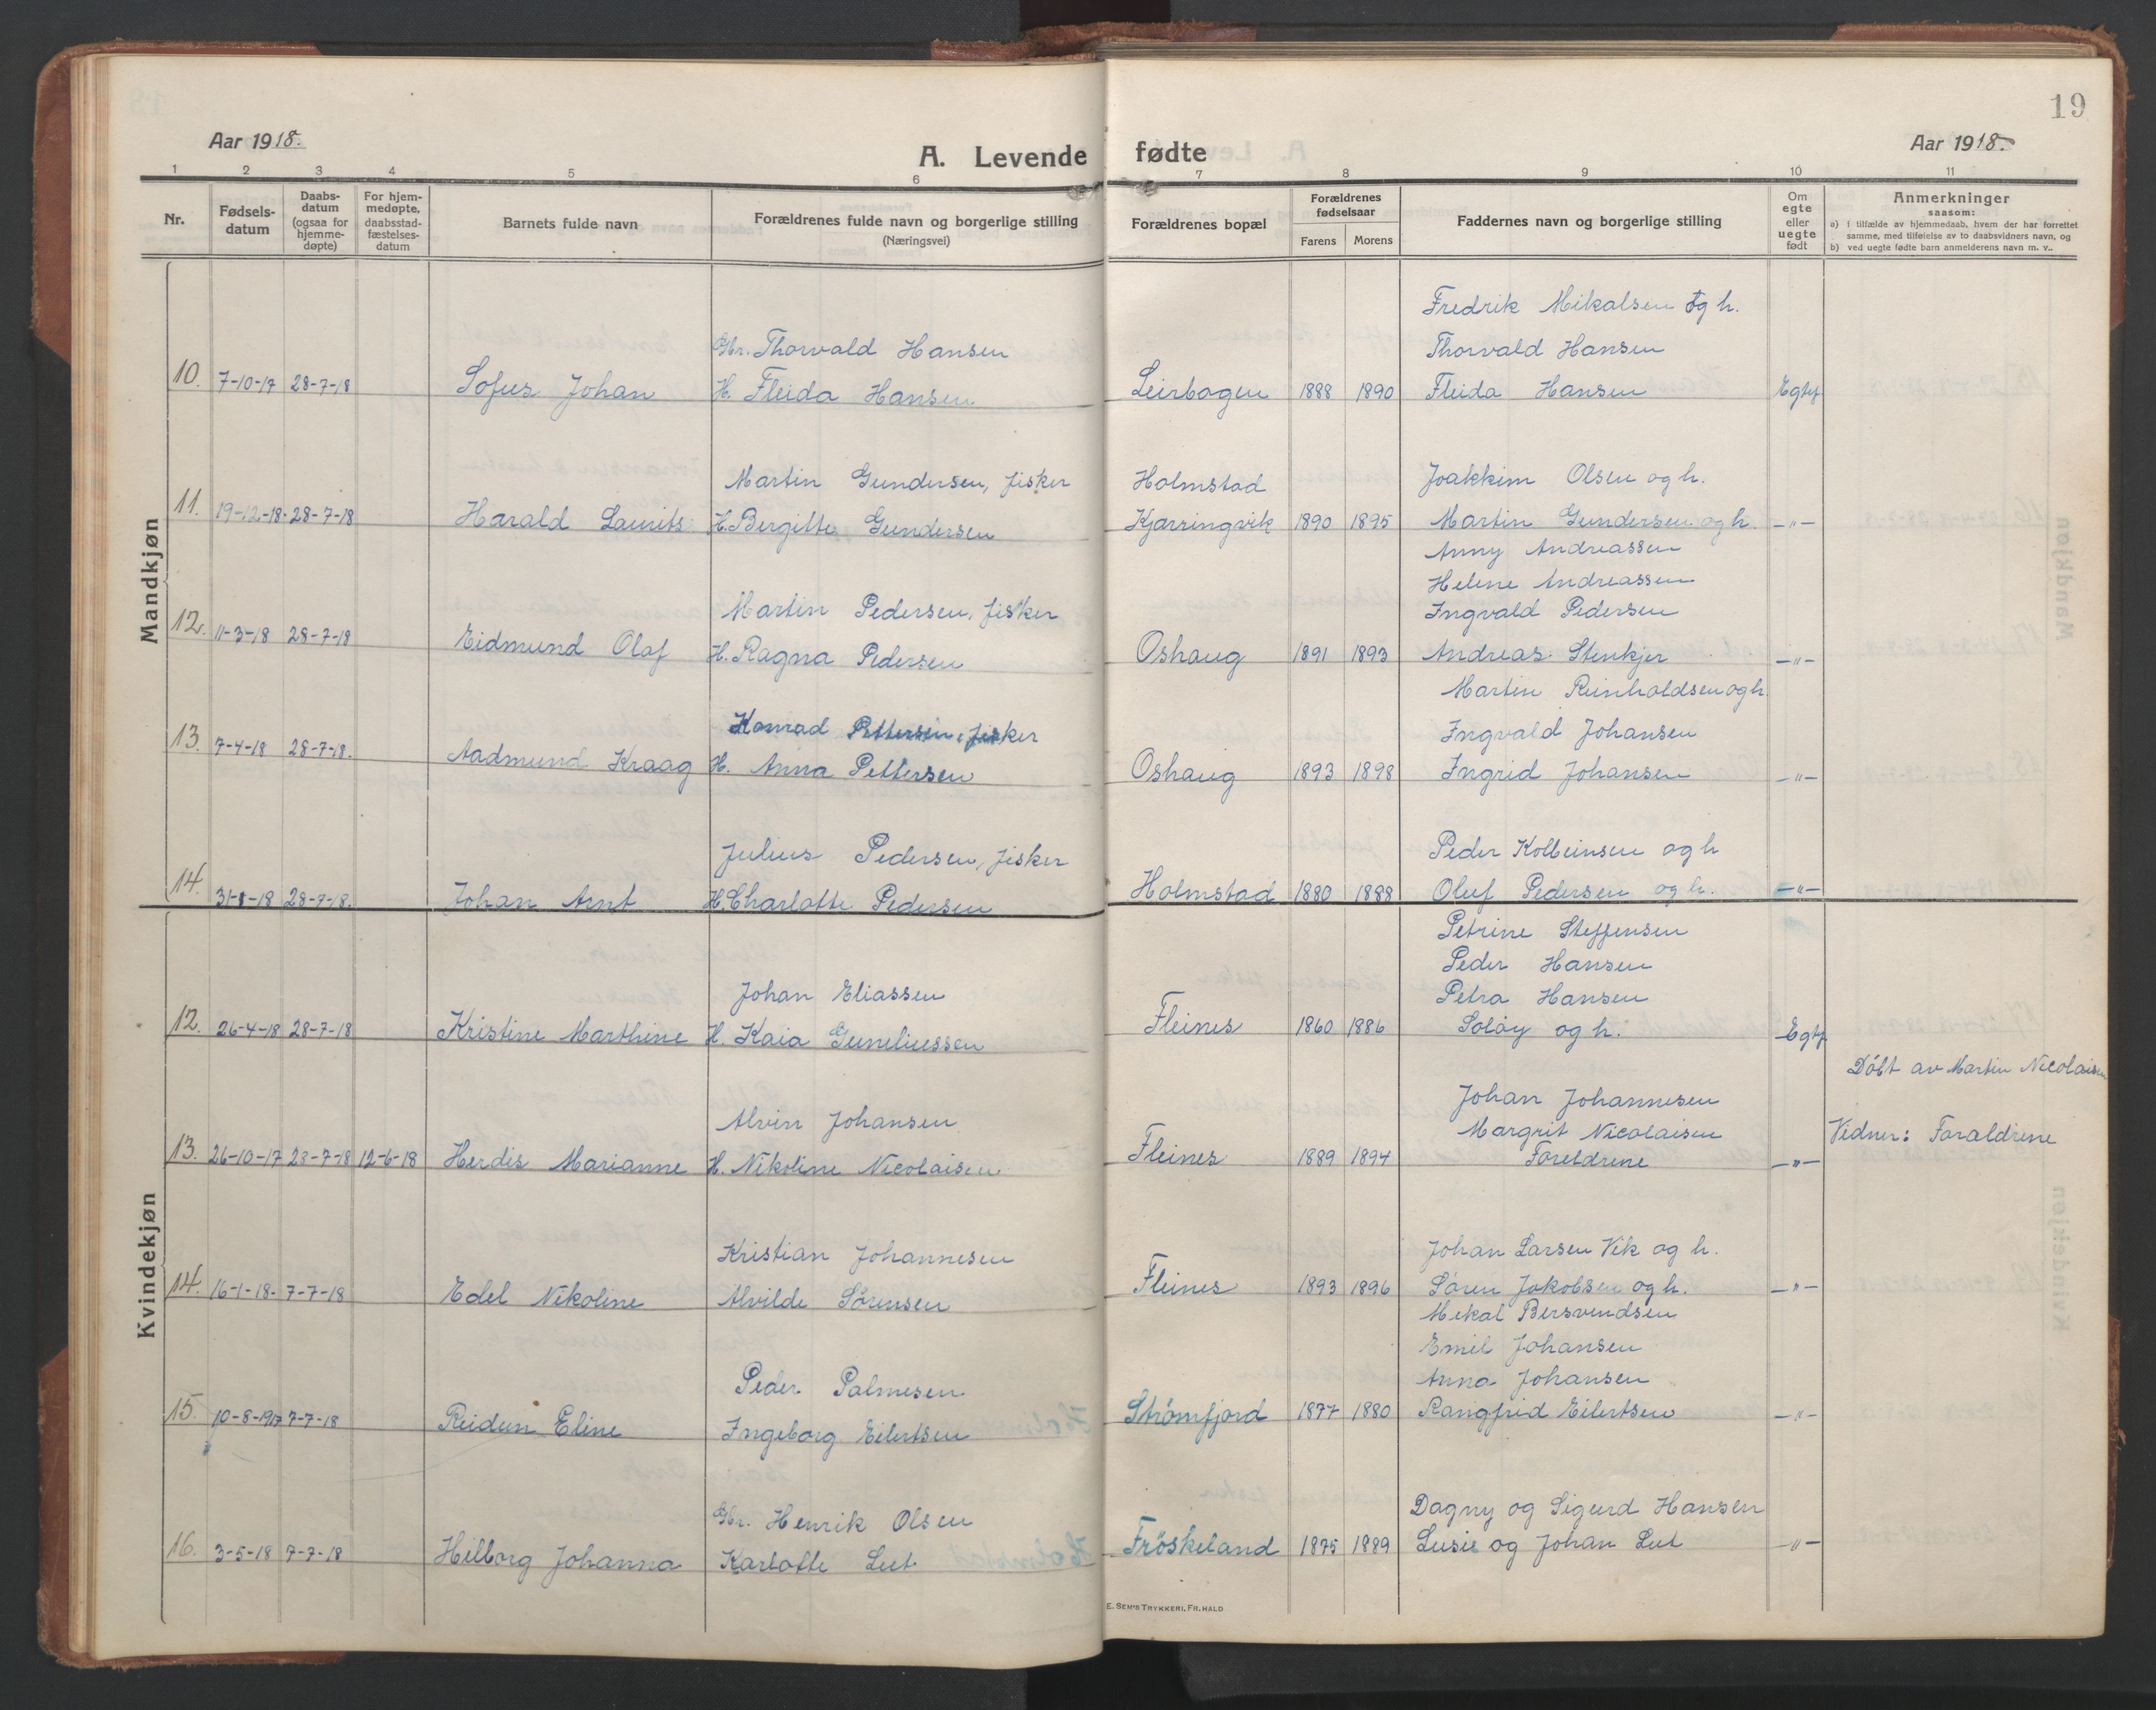 19
Aar 1918.
A. Levende fødte
Aar 1918.
1 2 3 4 5 6 7 8 9 10 11
Nr.
Fødsels-
datum
Daabs-
datum
(ogsaa for
hjemme-
døpte)
For hjem-
medøpte,
daabsstad-
fæstelses-
datum
Barnets fulde navn
Forældrenes fulde navn og borgerlige stilling
(Næringsvei)
Forældrenes bopæl
Forældrenes
fødselsaar
Farens Morens
Faddernes navn og borgerlige stilling
Om
egte
eller
uegte
født
Anmerkninger
saasom:
a) I tilfælde av hjemmedaab, hvem der har forrettet
samme, med tilføielse av to daabsvidners navn, og
b) ved uegte fødte barn anmelderens navn m. v..
Mandkjøn
Fredrik Mikalsen og h.
Gbr. Thorvald Hansen Thorvald Hansen
10. 7-10-17 28-7-18 Sofus Johan H. Fleida Hansen Leirbogen 1888 1890 Fleida Hansen Egte
Martin Gundersen, fisker Holmstad Joakkim Olsen og h.
11. 19-12-18- 28-7-18 Harald Laurits H. Bergitte Gundersen Kjærringvik 1890 1895 Martin Gundersen og h. -"-
Anny Andreassen
Helene Andreassen
Martin Pedersen, fisker Ingvald Pedersen
12. 11-3-18 28-7-18 Eidmund Olaf H. Ragna Pedersen Oshaug 1891 1893 Andreas Stenkjer -"-
Martin Reinholdsen og h.
Konrad Pettersen, fisker Ingvald Johansen
13. 7-4-18 28-7-18. Aadmund Kraag H. Anna Pettersen Oshaug 1893 1898 Ingrid Johansen -"-
Julius Pedersen, fisker Peder Kolbeinsen og h
14. 28-7-18. Johan Arnt H. Charlotte Pedersen Holmstad 1880 1888 Oluf Pedersen og h. -"-
Kvindekjøn
Petrine Steffensen
Peder Hansen
Johan Eliassen Petra Hansen
12. 26-4-18 28-7-18 Kristine Marthine H. Kaia Guneliussen Fleines 1860 1886 Soløy og h. Egte
Døbt av Martin Nicolaisen
Johan Johannesen
Alvin Johansen Margrit Nicolaisen Vidner: Foraldrene
13. 26-10-17 28-7-18 12-6-18 Herdis Marianne H. Nikoline Nicolaisen Fleines 1889 1894 Foreldrene -"-
Kristian Johannesen Johan Larsen Vik og h.
14. 16-1-18- 7-7-18 Edel Nikoline Alvilde Sørensen Fleines 1893 1896 Søren Jakobsen og h. -"-
Mekal Bersvendsen
Emil Johansen
Peder Palmesen Anna Johansen
15. 10-8-1917 7-7-18 Reidun Eline Ingeborg Eilertsen Strømfjord 1877 1880 Rangfrid Eilertsen -"-
Gbr. Henrik Olsen Dagny og Sigurd Hansen
16. 3-5-18 7-7-18 Hilborg Johanna Karlotte Lut Frøskeland 1875 1889 Lusie og Johan Lut -"-
E. SEM'S TRYKKERI, FR. HALD